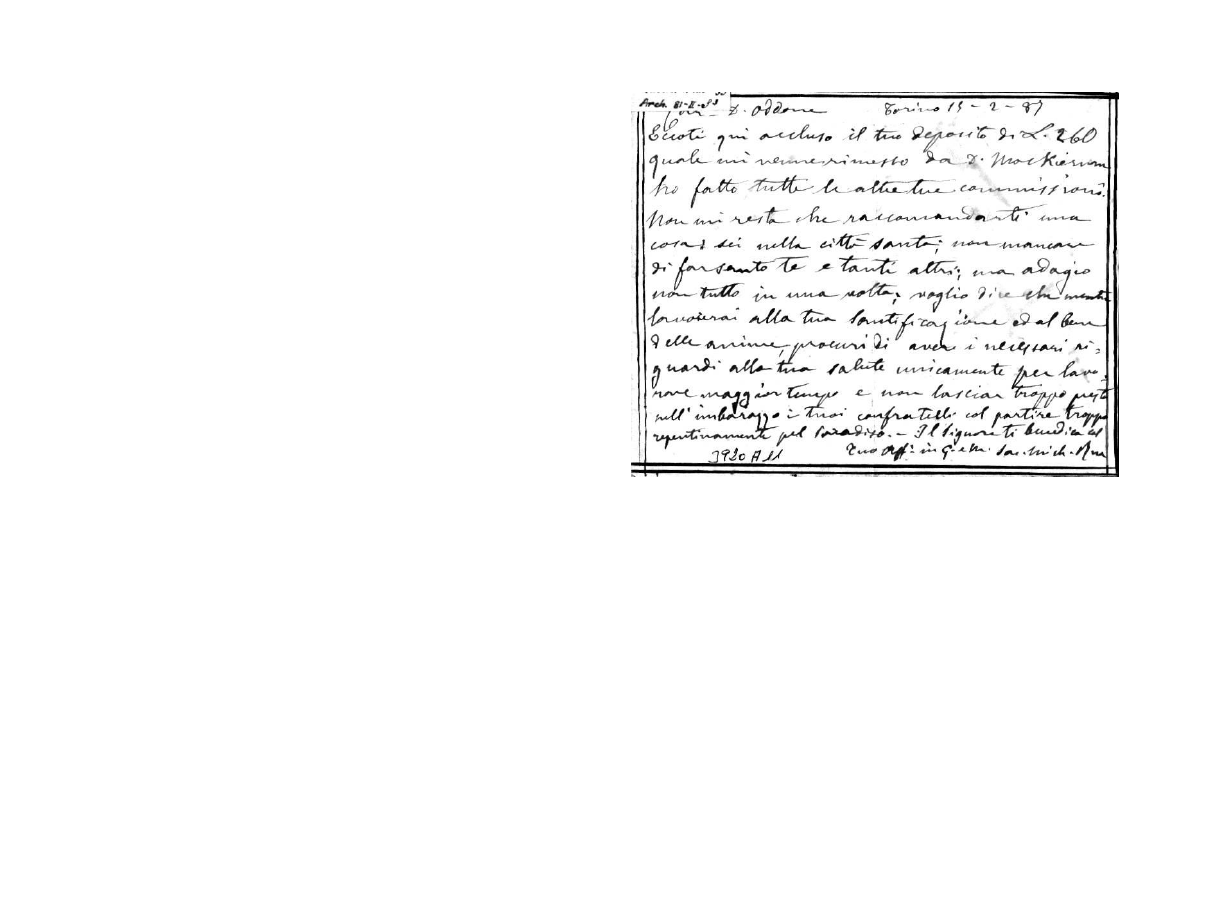 Arch. 81-II-83
D. Oddone Torino 15 - 2 - 87
Eccoti qui accluso il tuo deposito di L. 260
quale mi venne rimesso da D. MacKiernan
ho fatto tutte le altre tue commissioni.
Non mi resta che raccomandarti una
cosa: sei nella città santa; non mancare
di far santo te e tanti altri; ma adagio
non tutto in una volta; voglio dire che mentre
lavorerai alla tua santificazione ed al bene
delle anime, procuri di avere i necessari ri=
guardi alla tua salute unicamente per lavo=
rare maggior tempo e non lasciar troppo presto
nell'imbarazzo i tuoi confratelli col partire troppo
repentinamente pel Paradiso. - Il Signore ti benedica col
Tuo Aff. in G. e M. Sac. Mich. Rua
3920 A 11